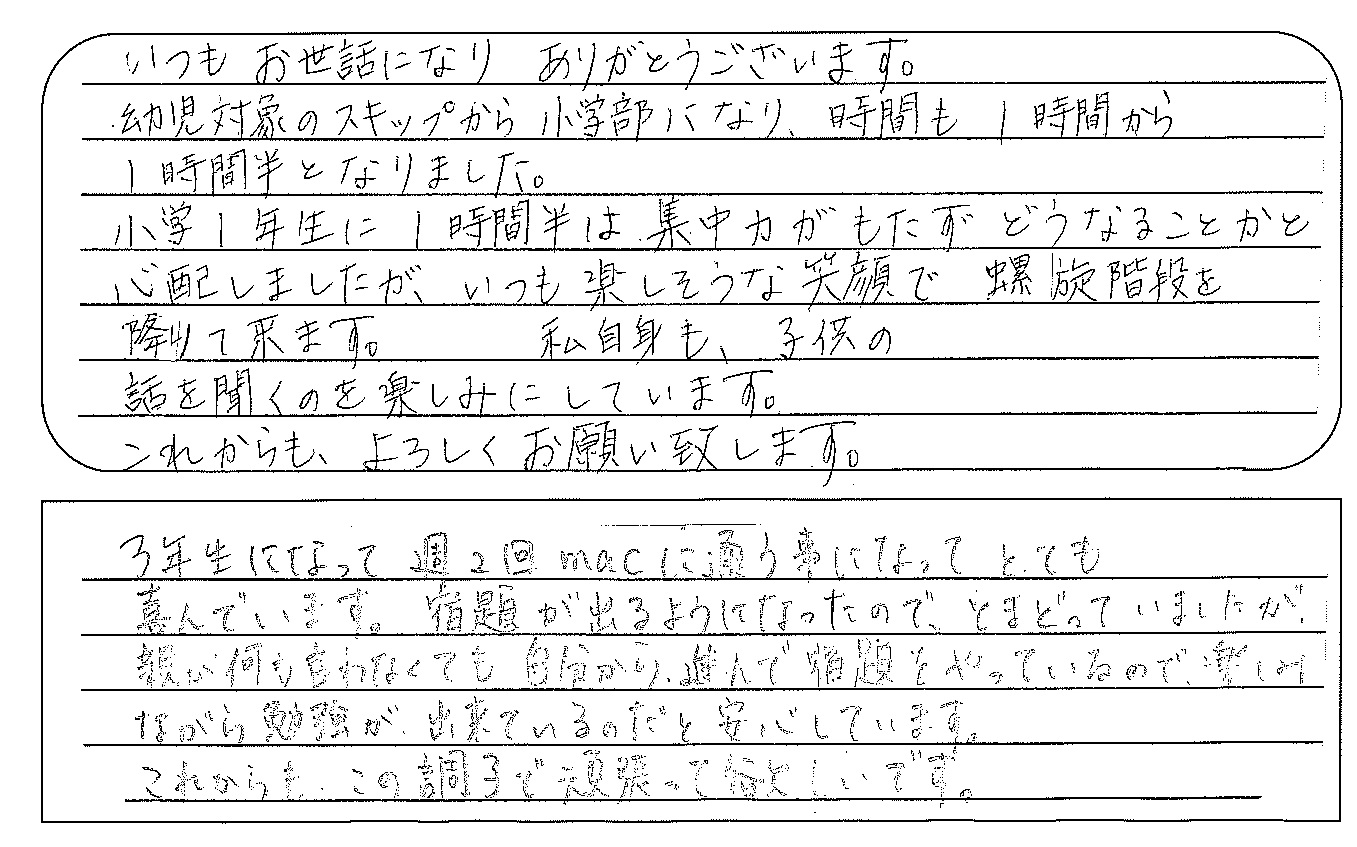 いつも お世話になり ありがとうございます。
幼児対象のスキップから 小学部になり、時間も 1時間から
1時間半となりました。
小学1年生に 1時間半は 集中力がもたず どうなることかと
心配しましたが、いつも楽しそうな笑顔で 螺旋階段を
降りて来ます。 私自身も、子供の
話を聞くのを楽しみにしています。
これからも、よろしくお願い致します。
3年生になって 週2回 macに通う事になって とても
喜んでいます。宿題が出るようになったので、とまどっていましたが、
親が何も言わなくても 自分から、進んで宿題をやっているので、楽しみ
ながら勉強が、出来ているのだと安心しています。
これからも、この調子で頑張って欲しいです。